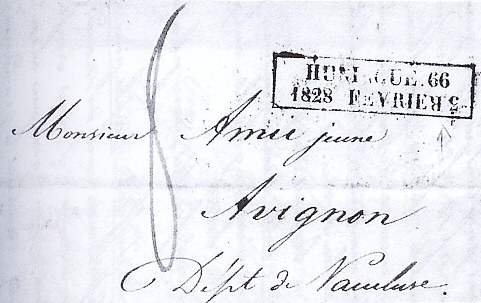 HUNINGUE. 66
1828 FEVRIER 5
8
Monsieur Amic jeune
Avignon
Dépt de Vaucluse.